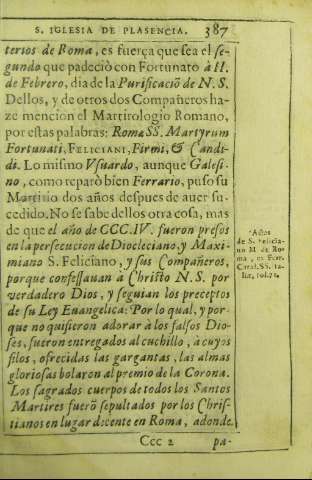 S. IGLESIA DE PLASENCIA. 387
terios de Roma, es fuerça que sea el se-
gundo que padeciò con Fortunato à II.
de Febrero, dia de la Purificaciõ de N. S.
Dellos, y de otros dos Compañeros ha-
ze mencion el Martirologio Romano,
por estas palabras: Romæ SS. Martyrum
Fortunati, FELICIANI, Firmi, & Candi-
di. Lo mismo Vsuardo, aunque Galesi-
no, como reparò bien Ferrario, puso su
Martirio dos años despues de auer su-
cedido. No se sabe dellos otra cosa, mas
de que el año de CCC. IV. fueron presos
en la persecucion de Diocleciano, y Maxi-
miano S. Feliciano, y sus Compañeros,
porque confessauan à Christo N. S. por
verdadero Dios, y seguian los preceptos
de su Ley Euangelica: Por lo qual, y por-
que no quisieron adorar à los falsos Dio-
ses, fueron entregados al cuchillo, à cuyos
filos, ofrecidas las gargantas, las almas
gloriosas bolaron al premio de la Corona.
Los sagrados cuerpos de todos los Santos
Martires fuerõ sepultados por los Chris-
tianos en lugar decente en Roma, adonde
Ccc 2 pa-
de S. Felicia-
no M. de Ro-
ma, ex Ferr.
Catal. SS. Ita-
liæ, fol. 72.